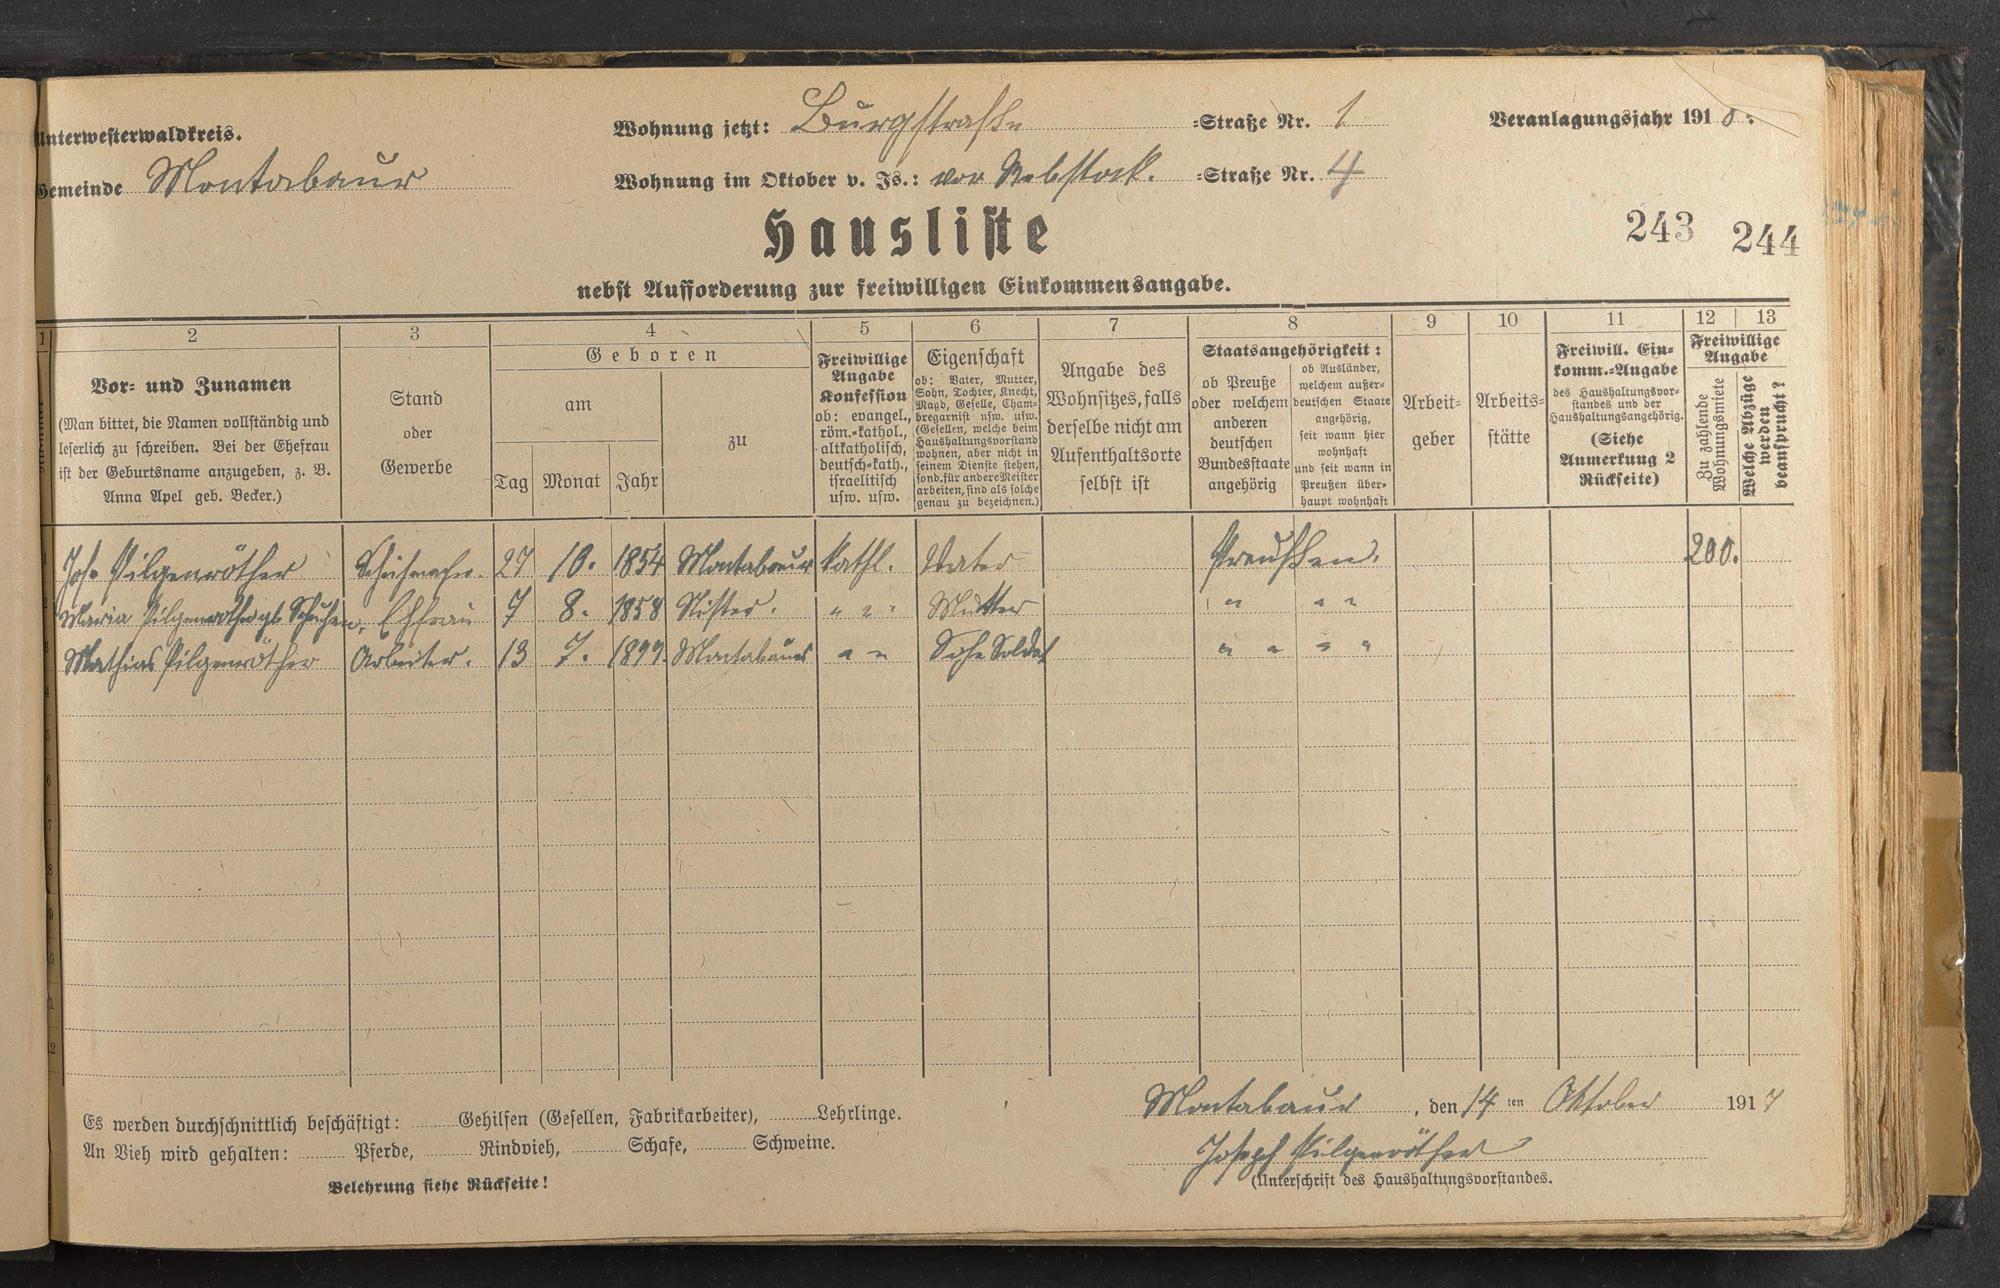 Unterwesterwaldkreis.
Wohnung jetzt: Burgstraße =Straße Nr. 1
Veranlagungsjahr 1918.
Gemeinde Montabaur
Wohnung im Oktober v. Js.: vor Rebstock. =Straße Nr. 4
Hausliste
243 244
nebst Aufforderung zur freiwilligen Einkommensangabe.
1 2 3 4 5 6 7 8 9 10 11 12 13
Vor- und Zunamen
(Man bittet, die Namen vollständig und
leserlich zu schreiben. Bei der Ehefrau
ist der Geburtsname anzugeben, z. B.
Anna Apel geb. Becker.)
Stand
oder
Gewerbe
Geboren
am
Tag Monat Jahr
zu
Freiwillige
Angabe
Konfession
ob: evangel.,
röm.-kathol.,
altkatholisch,
deutsch-kath.,
israelitisch
usw. usw.
Eigenschaft
ob: Vater, Mutter,
Sohn, Tochter, Knecht,
Magd, Geselle, Cham-
bregarnist usw. usw.
(Gesellen, welche beim
Haushaltungsvorstand
wohnen, aber nicht in
seinem Dienste stehen,
sond. für andere Meister
arbeiten, sind als solche
genau zu bezeichnen.)
Angabe des
Wohnsitzes, falls
derselbe nicht am
Aufenthaltsorte
selbst ist
Staatsangehörigkeit:
ob Preuße
oder welchem
anderen
deutschen
Bundesstaate
angehörig
ob Ausländer,
welchem außer-
deutschen Staate
angehörig,
seit wann hier
wohnhaft
und seit wann in
Preußen über-
haupt wohnhaft
Arbeit-
geber
Arbeits-
stätte
Freiwill. Ein-
komm.-Angabe
des Haushaltungsvor-
standes und der
Haushaltungsangehörig.
(Siehe
Anmerkung 2
Rückseite)
Freiwillige
Angabe
Zu zahlende
Wohnungsmiete
Welche Abzüge
werden
beansprucht?
1 Jos. Pilgenröther Schuhmacher. 27 10. 1854 Montabaur kathl. Vater Preußen. 200.
2 Maria Pilgenröther Ehfrau 7 8. 1858 Nister. " " " Mutter " " "
3 Mathias Pilgenröther Arbeiter. 13 7. 1899 Montabaur " " Sohn Soldat " " " "
4
5
6
7
8
9
10
11
12
Es werden durchschnittlich beschäftigt: Gehilfen (Gesellen, Fabrikarbeiter), Lehrlinge.
An Vieh wird gehalten: Pferde, Rindvieh, Schafe, Schweine.
Belehrung siehe Rückseite!
Montabaur, den 14ten Oktober 1917
Joseph Pilgenröther
(Unterschrift des Haushaltungsvorstandes.